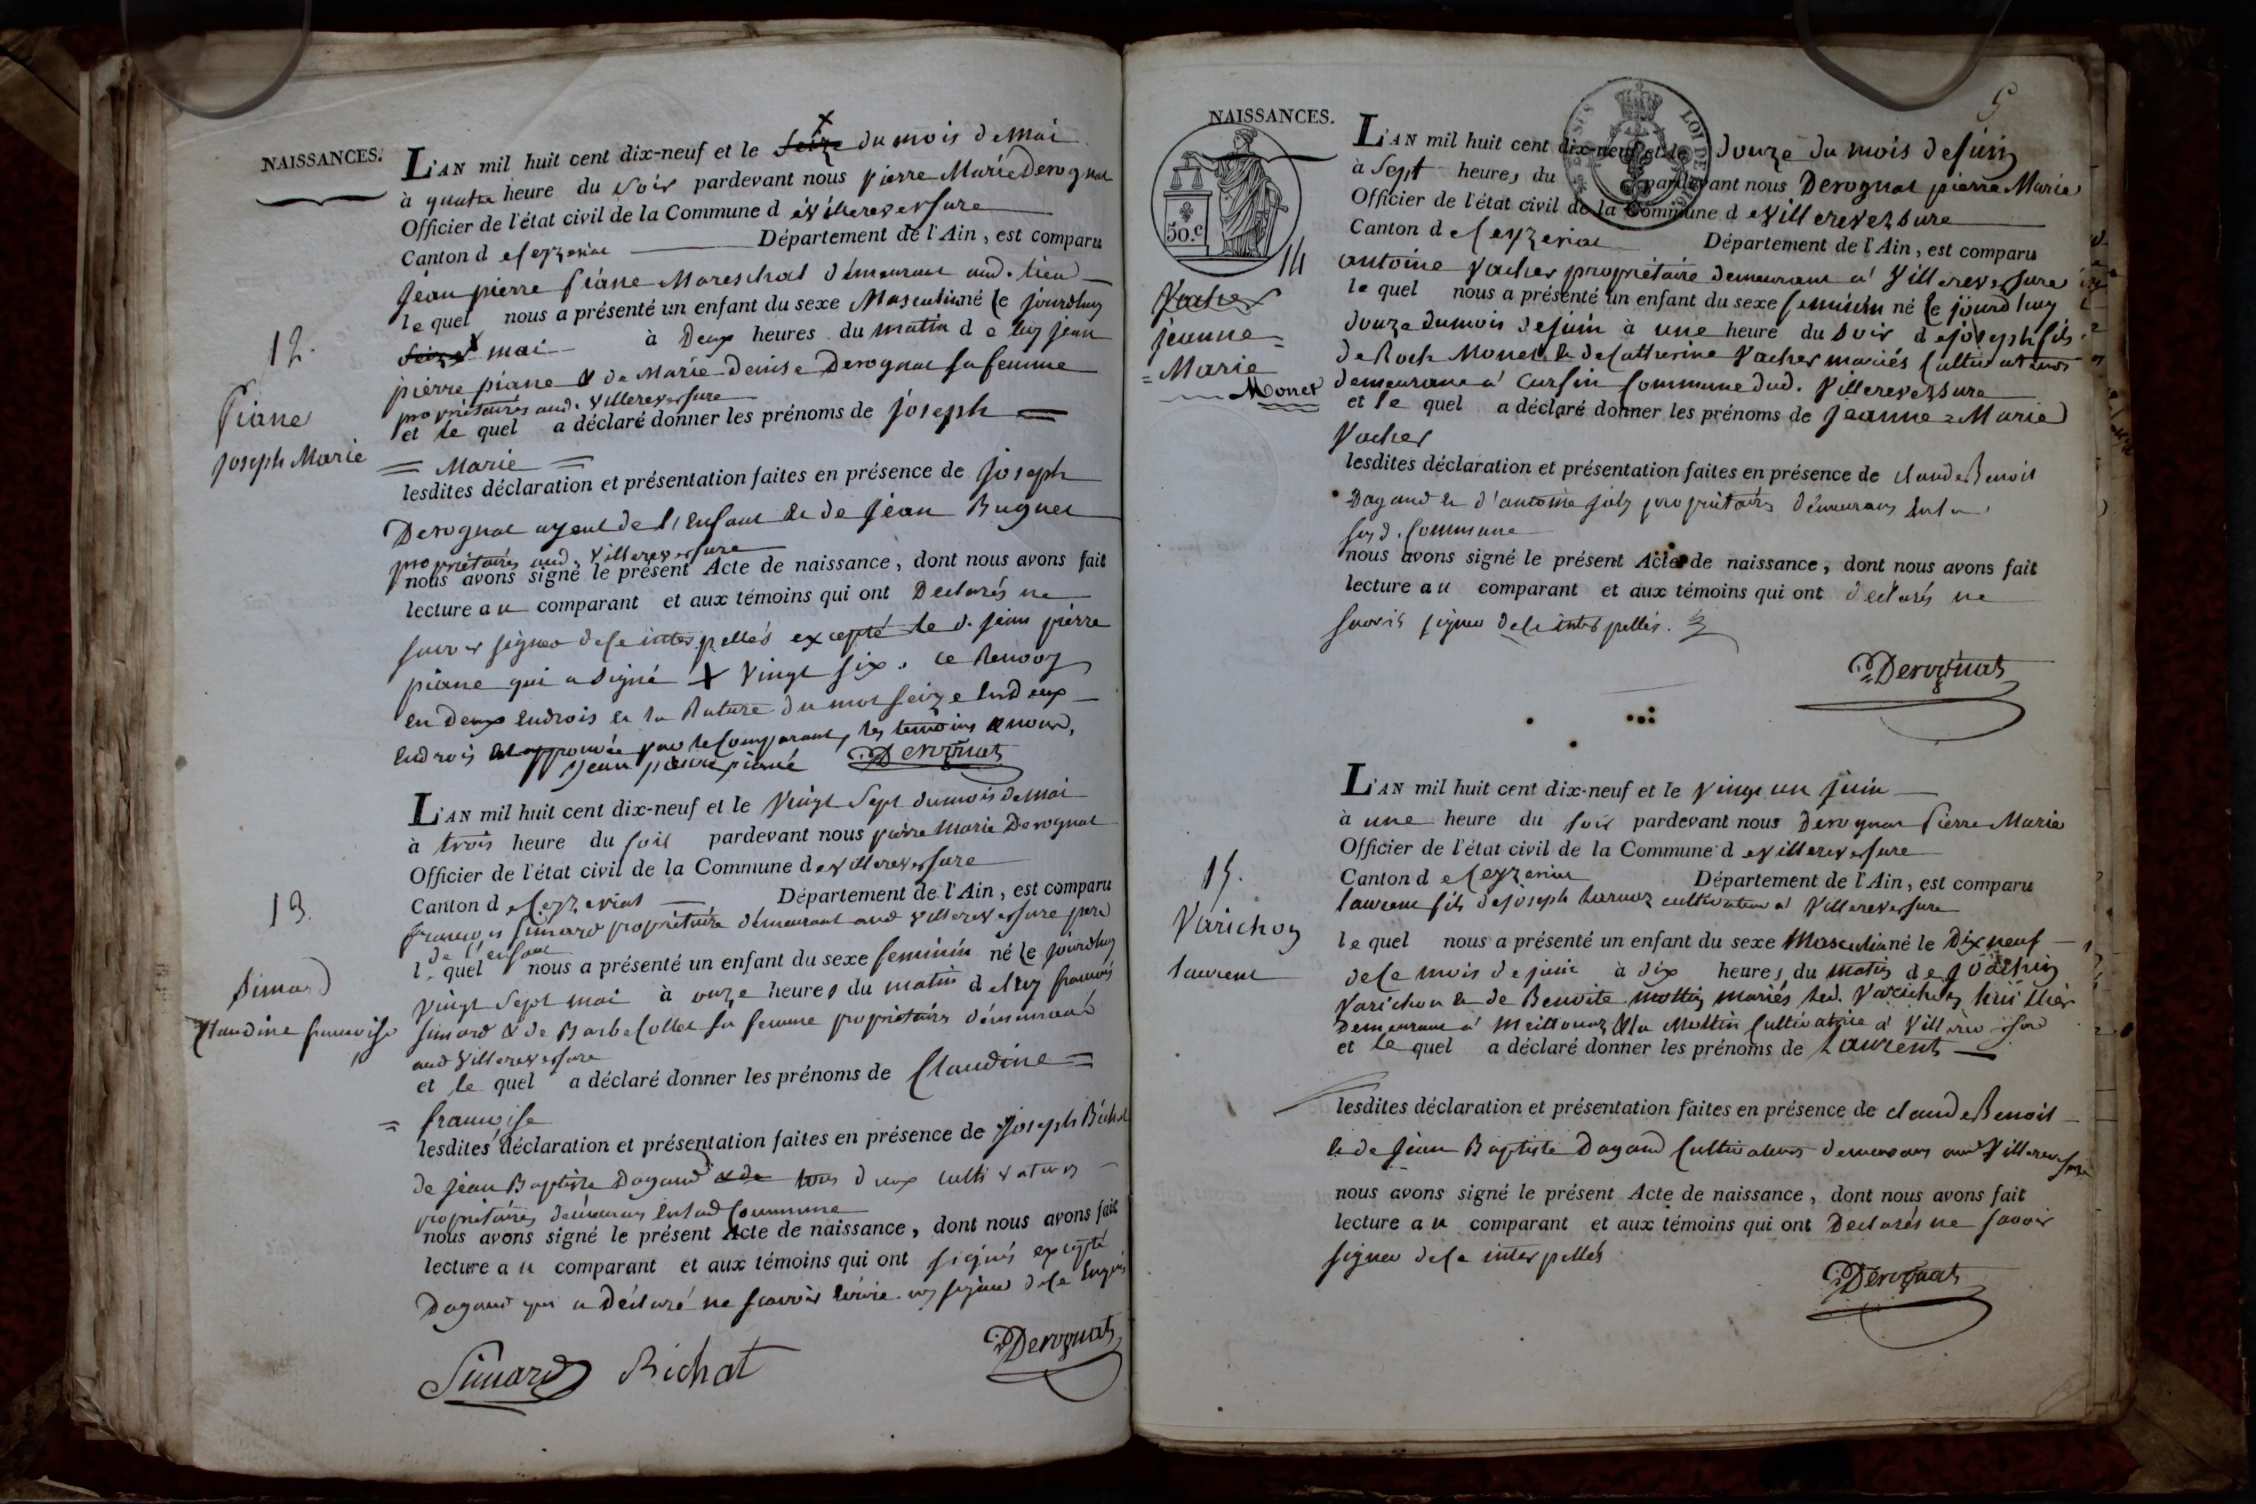 NAISSANCES.
L'AN mil huit cent dix-neuf et le seize du mois de Mai
à quatre heure du soir pardevant nous pierre Marie Derognat
Officier de l'état civil de la Commune d evillereversure
Canton d eCeyzeriat Département de l'Ain, est comparu
jean pierre piane Mareschal démeurant aud. lieu
le quel nous a présenté un enfant du sexe Masculin né le jourdhuy
seize mai à Deux heures du matin d e luy jean
pierre piane & de Marie denise Derognat sa femme
propriétaires aud. Villereversure
et le quel a déclaré donner les prénoms de joseph =
= Marie =
lesdites déclaration et présentation faites en présence de joseph
Derognat ayeul de l'enfant & de jean Buguet
propriétaires aud. Villereversure
nous avons signé le présent Acte de naissance, dont nous avons fait
lecture a u comparant et aux témoins qui ont Déclarés ne
savoir signer de ce interpellés excepté le d. jean pierre
piane qui a signé X vingt six. ce renvoy
en deux endrois & la Rature du mot seize en deux
endrois est approuvée par le Comparant, les temoins & nous,
jean pierre piane Derognat
12.
Piane
joseph Marie
L'AN mil huit cent dix-neuf et le vingt sept du mois de mai
à trois heure du soir pardevant nous pierre marie Derognat
Officier de l'état civil de la Commune d evillereversure
Canton d eCeyzeriat Département de l'Ain, est comparu
françois simard propriétaire démeurant aud villereversure pere
de l'enfant
l e quel nous a présenté un enfant du sexe feminin né le jourdhuy
vingt sept mai à onze heures du matin d e luy francois
simard & de Barbe Collet sa femme propriétaires démeurant
aud villereversure
et le quel a déclaré donner les prénoms de Claudine =
= francoise
lesdites déclaration et présentation faites en présence de joseph Bichat
de jean Baptiste Dagand & de tous deux cultivateurs
propriétaires démeurans en lad Commune
nous avons signé le présent Acte de naissance, dont nous avons fait
lecture a u comparant et aux témoins qui ont signés excepté
Dagand qui a Déclaré ne scavoir écrire ny signer de ce enquis
Simard Bichat Derognat
13.
Simard
Claudine francoise
5
NAISSANCES.
50.c
LOI DE
L'AN mil huit cent dix-neuf et le douze du mois de juin
à sept heures du pardevant nous Derognat pierre Marie
Officier de l'état civil de la Commune d evillereversure
Canton d eCeyzeriat Département de l'Ain, est comparu
antoine Vacher propriétaire demeurant à Villereversure
le quel nous a présenté un enfant du sexe feminin né le jourd huy
douze du mois de juin à une heure du soir d e joseph fils
de Roch Monet & de Catherine Vacher mariés Cultivateurs
demeurant à Cursin Commune dud. Villereversure
et le quel a déclaré donner les prénoms de jeanne = Marie
Vacher
lesdites déclaration et présentation faites en présence de claude Benoit
Dagand & d'antoine joly propriétaires démeurans en la
susd. Commune
nous avons signé le présent Acte de naissance, dont nous avons fait
lecture a u comparant et aux témoins qui ont déclarés ne
savoir signer de ce interpellés.
Derognat
14
Vacher
jeanne =
= Marie
Monet
L'AN mil huit cent dix-neuf et le vingt un juin
à une heure du soir pardevant nous Derognat Pierre Marie
Officier de l'état civil de la Commune d evillereversure
Canton d eCeyzeriat Département de l'Ain, est comparu
laurent fils de joseph cultivateur à Villereversure
le quel nous a présenté un enfant du sexe Masculin né le Dix neuf
de ce mois de juin à dix heures du matin d e joachim
Varichon & de Benoite mottin mariés led. Varichon huissier
demeurant à Meillonaz & la Mottin Cultivatrice à Villereversure
et le quel a déclaré donner les prénoms de Laurent
lesdites déclaration et présentation faites en présence de claude Benoit
& de jean Baptiste Dagand Cultivateurs demeurans aud Villereversure
nous avons signé le présent Acte de naissance, dont nous avons fait
lecture a u comparant et aux témoins qui ont Déclarés ne savoir
signer de ce interpellés
Derognat
15.
Varichon
laurent